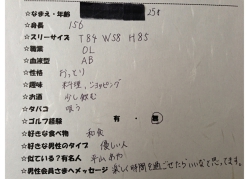 ☆なまえ・年齢 25才
☆身長 156
☆スリーサイズ T84 W58 H85
☆職業 OL
☆血液型 AB
☆性格 おっとり
☆趣味 料理、ショッピング
☆お酒 少し飲む
☆タバコ 吸う
☆ゴルフ経験 有・無
☆好きな食べ物 和食
☆好きな男性のタイプ 優しい人
☆似ている?有名人 平山あや
☆男性会員さまへメッセージ 楽しく時間を過ごせたらいいなて思ってます。